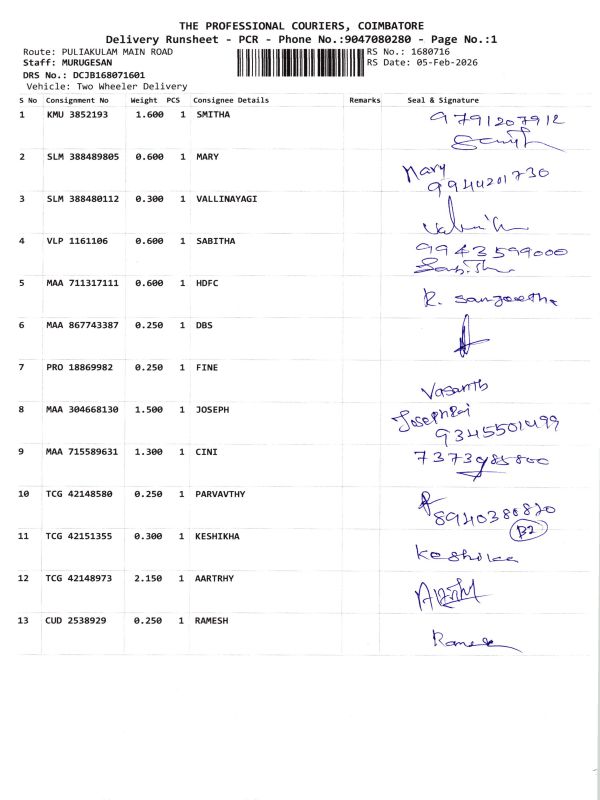 THE PROFESSIONAL COURIERS, COIMBATORE
Delivery Runsheet - PCR - Phone No.:9047080280 - Page No.:1
Route: PULIAKULAM MAIN ROAD RS No.: 1680716
Staff: MURUGESAN RS Date: 05-Feb-2026
DRS No.: DCJB168071601
Vehicle: Two Wheeler Delivery
S No Consignment No Weight PCS Consignee Details Remarks Seal & Signature
1 KMU 3852193 1.600 1 SMITHA 9791207912
2 SLM 388489805 0.600 1 MARY Mary
9944201730
3 SLM 388480112 0.300 1 VALLINAYAGI
4 VLP 1161106 0.600 1 SABITHA 9943599000
Sabitha
5 MAA 711317111 0.600 1 HDFC R. Sangeetha
6 MAA 867743387 0.250 1 DBS
7 PRO 18869982 0.250 1 FINE Vasanth
8 MAA 304668130 1.500 1 JOSEPH Joseph Raj
9345501499
9 MAA 715589631 1.300 1 CINI 7373985800
10 TCG 42148580 0.250 1 PARVAVTHY
8940380820
B2
11 TCG 42151355 0.300 1 KESHIKHA Keshikaa
12 TCG 42148973 2.150 1 AARTRHY
13 CUD 2538929 0.250 1 RAMESH Ramesh